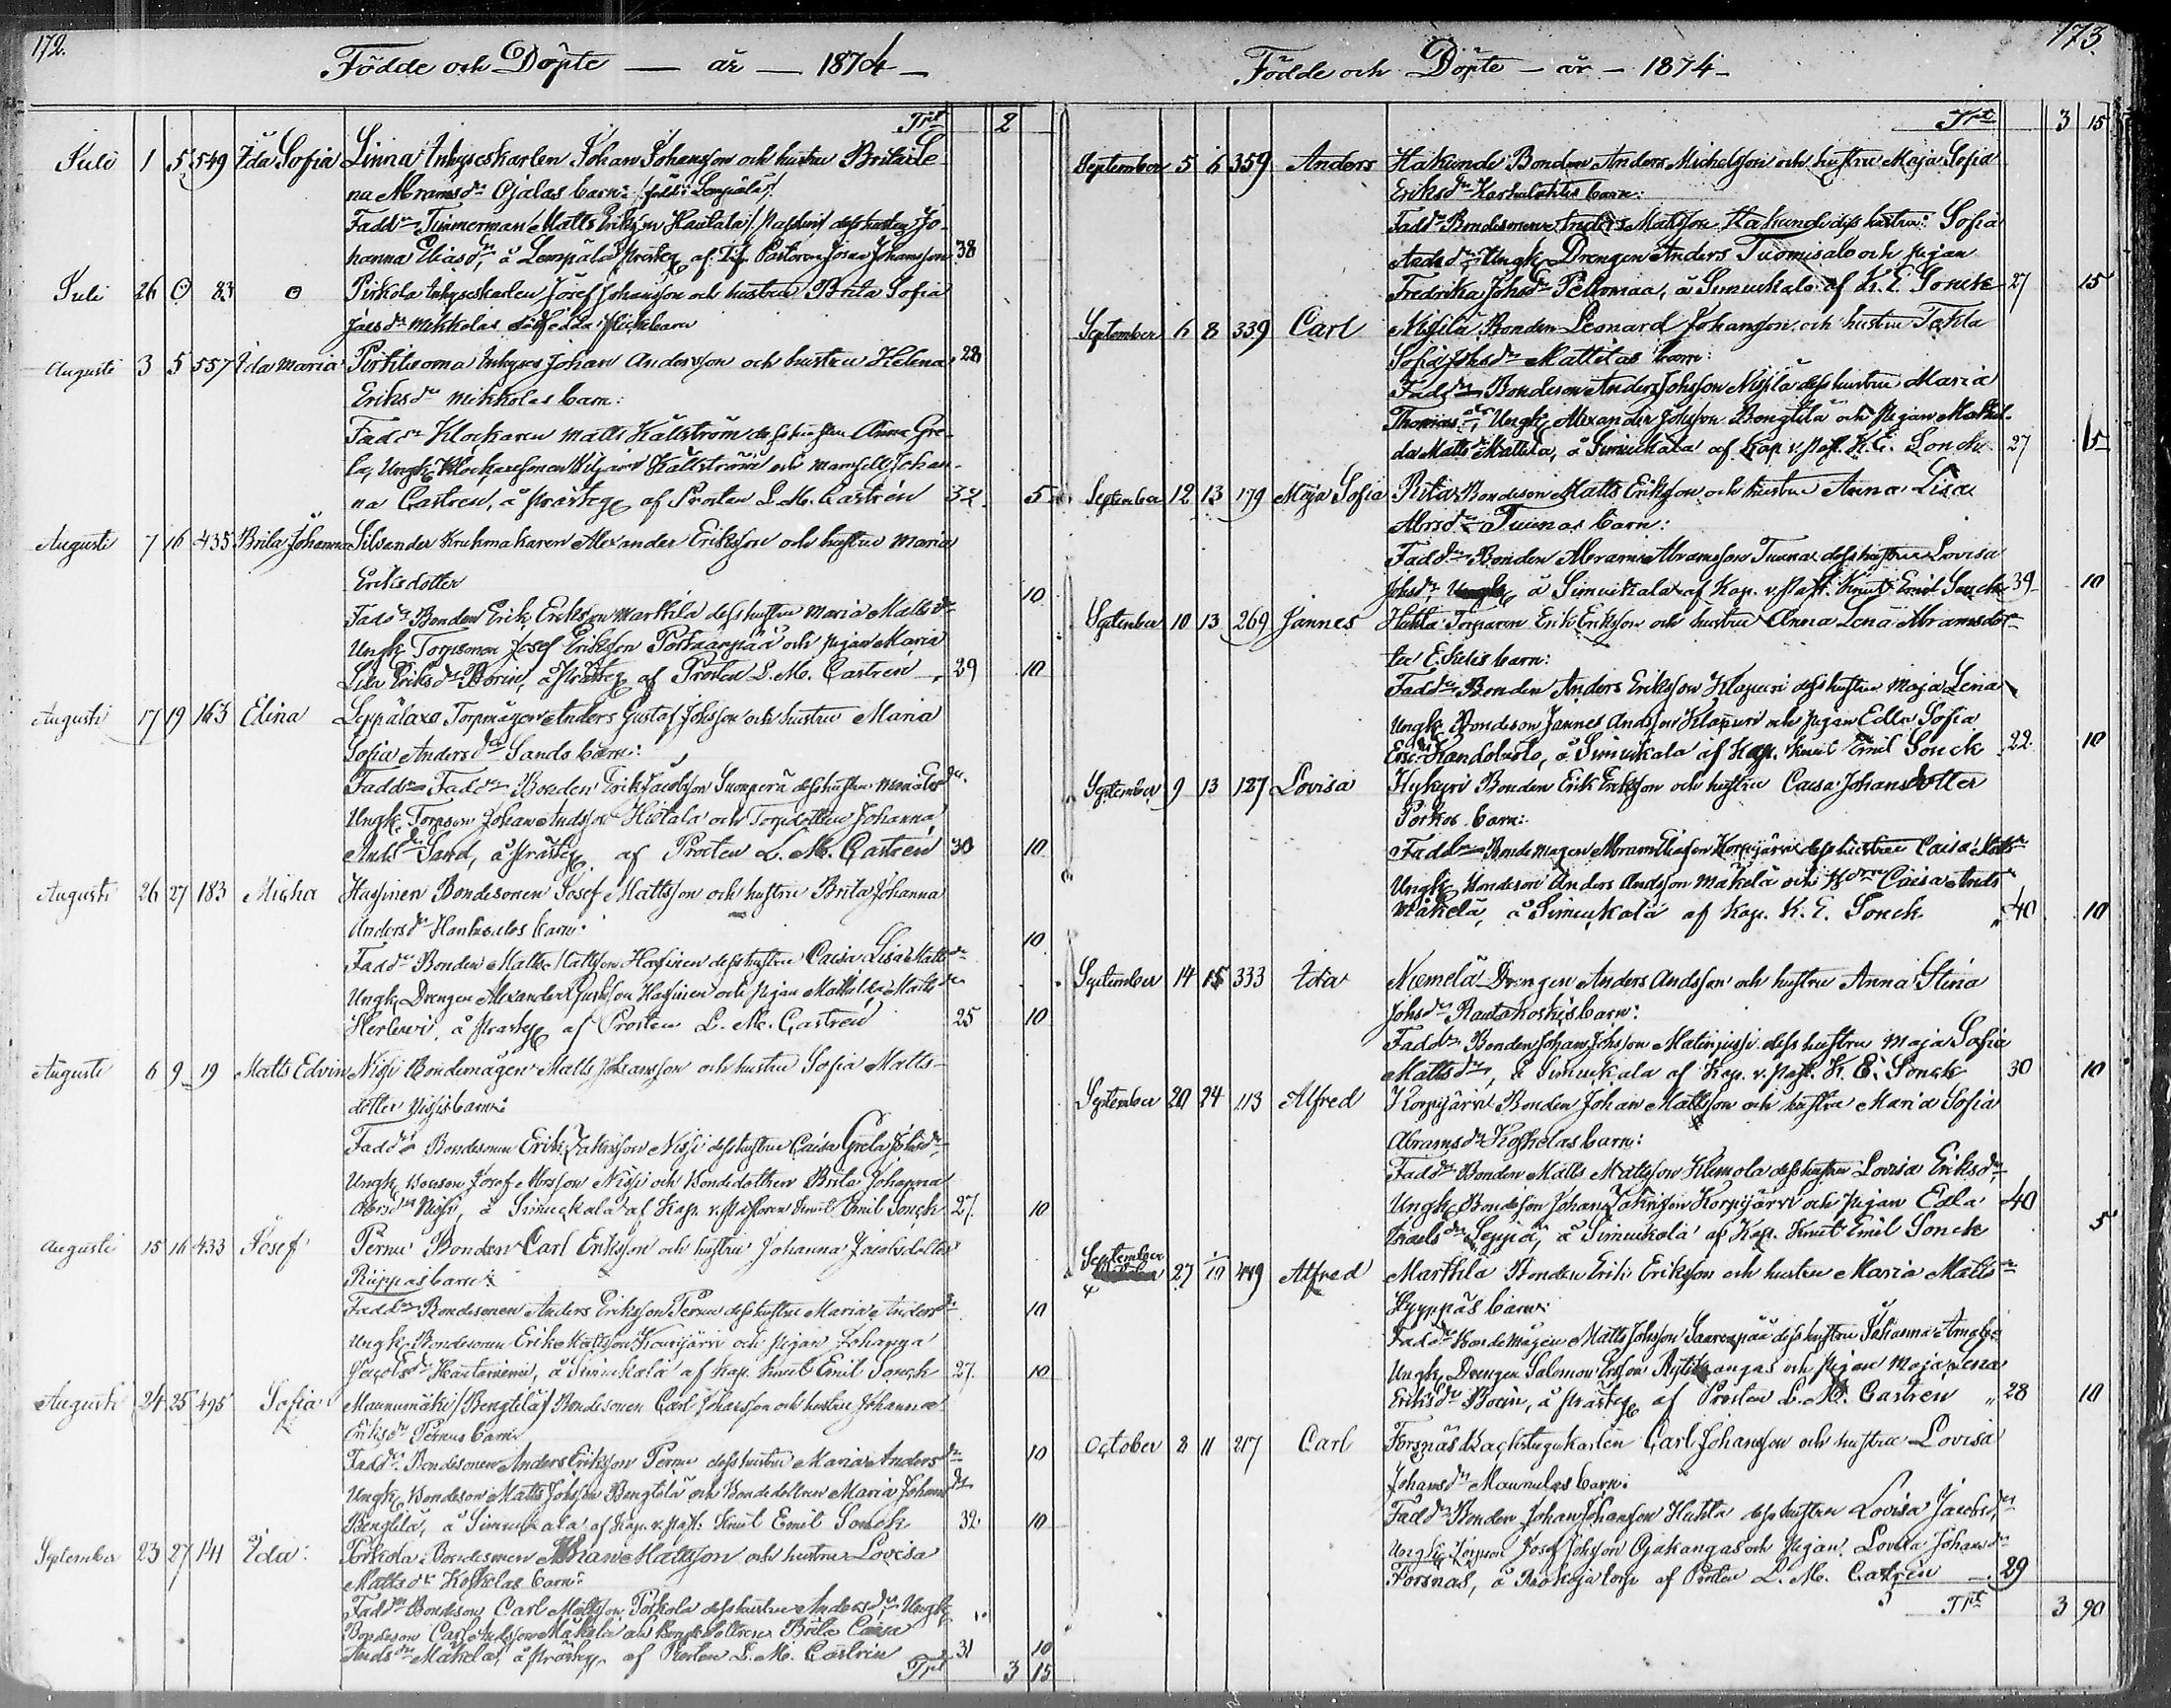 172.
Födde och Döpte — år — 1874 —
Trt 2
Juli 1 5 549 Ida Sofia Linna Inhyseskarlen Johan Johansson och hustru Brita Le-
na Abramsdr Ojalas barn:
Faddr Timmerman Matts Eriksson Hautala dess hustru Jo-
hanna Eliasdr, å Lempälä af Pastoren Johansson 38
Juli 26 0 83 0 Pirkola Inhyseskarlen Josef Johansson och hustru Brita Sofia
Jacsdr Mikkolas dödfödda flickebarn
Augusti 3 5 557 Ida Maria Inhyses Johan Andersson och hustru Helena 28
Eriksdr Mikkolas barn:
Faddr Klockaren Matts Källström dess hustru Anna Gre-
ta, Ungk. Klockaresonen Källström och mamsell Johan-
na Castren, å prästeg af Prosten L. M. Castrén 32. 5
Augusti 7 16 435 Brita Johanna Silvander Krukmakaren Alexander Eriksson och hustru Maria
Eriksdotter 10
Faddr Bonden Erik Eriksson Marttila dess hustru Maria Mattsdr
Ungk. Torpsonen Josef Eriksson och pigan Maria
Lisa Eriksdr, å prästeg af Prosten L. M. Castrén 29 10
Augusti 17 19 163 Edina Leppälaxo Torpmågen Anders Gustaf Johsson och hustru Maria
Sofia Andersdr Sands barn:
Faddr Faddr Bonden Erik Jacobsson Suonperä dess hustru Maria
Ungk. Torpson Johan Andsson Hietala och Torpdottren Johanna
Andsdr Sand, å prästeg af Prosten L. M. Castrén 30 10
Augusti 26 27 183 Micha Hassinen Bondesonen Josef Mattsson och hustru Brita Johanna
Andersdr barn: 10
Faddr Bonden Matts Mattsson Hassinen dess hustru Caisa Lisa Mattsdr
Ungk. Drengen Alexander Hassinen och pigan Mathilda Mattsdr
Herlevi, å prästeg af Prosten L. M. Castrén 25 10
Augusti 6 9 19 Matts Edvin Nissi Bondemågen Matts Johansson och hustru Sofia Matts-
dotter Nissis barn:
Faddr Bondesonen Erik Nissi dess hustru Caisa Greta Johsdr
Ungk. Bonson Josef Abrsson Nissi och Bondedottren Brita Johanna
Nissi, å Simuckala af Kap. v. Pastoren Knut Emil Sonck 27. 10
Augusti 15 16 433 Josef Pernu Bonden Carl Eriksson och hustru Johanna Jacobsdotter
Riippas barn:
Faddr Bondesonen Anders Eriksson Pernu dess hustru Maria Andersdr 10
Ungk. Bondesonen Erik Mattsson och pigan Johanna
Jacobsdr Hautaniemi, å Simuckala af Kap. Knut Emil Sonck 27. 10
Augusti 24 25 495 Sofia Maununmäki (Bengtilä) Bondesonen Carl Johansson och hustru Johanna
Eriksdr Pernus barn
Faddr Bondesonen Anders Eriksson Pernu dess hustru Maria Andersdr 10
Ungk. Bondeson Matts Johsson Bengtilä och Bondedottren Maria Johansdr
Bengtilä, å Simuckala af Kap. v. Past. Knut Emil Sonck 32 10
September 23 27 141 Ida: Porkola Bondesonen Abram Mattsson och hustru Lovisa
Mattsdr Koskelas barn:
Faddr Bondeson Carl Mattsson Porkola dess hustru Andersdr, Ungk.
Bondeson Carl Andsson Mäkelä och Bondedottren Brita Caisa
Andsdr Mäkelä, å prästeg. af Prosten L. M. Castrén 31 10
Trt 3 15
173.
Födde och Döpte — år — 1874 —
Trt 3 15
September 5 6 359 Anders Hakunde Bonden Anders Michelsson och hustru Maja Sofia
Eriksdr Karhulahtis barn:
Faddr Bondesonen Anders Mattsson Hakunde dess hustru Sofia
Andsdr, Ungk. Drengen Anders Tuomisalo och pigan
Fredrika Johsdr Peltomaa, å Simuckala af K. E. Sonck 27 15
September 6 8 339 Carl Nissilä Bonden Leonard Johansson och hustru Tekla
Sofia Johsdr Mattilas barn:
Faddr Bondeson Anders Johsson Nissilä dess hustru Maria
Thomasdr, Ungk. Alexander Johsson Bengtilä och Pigan Mathil-
da Mattsdr Mattila, å Simuckala af Kap. v. Past. K. E. Sonck 27 15
September 12 13 179 Maja Sofia Rita Bondeson Matts Eriksson och hustru Anna Lisa
Abrsdr Tuimas barn:
Faddr Bonden Abram Abramsson Tuima dess hustru Lovisa
Johsdr, å Simuckala af Kap. v. Past. Knut Emil Sonck 39 10
September 10 13 269 Jannes Huhta Torparen Erik Eriksson och hustru Anna Lena Abramsdot-
ter Eskelis barn:
Faddr Bonden Anders Eriksson Klapuri dess hustru Maja Lena
Ungk. Bondeson Jannes Andsson Klapuri och pigan Edla Sofia
Kandolvela, å Simuckala af Kap. Knut Emil Sonck 22. 10
September 9 13 127 Lovisa Hykyri Bonden Erik Eriksson och hustru Caisa Johansdotter
Porkos barn:
Faddr Bondemågen Abram Korpijärvi dess hustru Caisa Mattsdr
Ungk. Bondeson Anders Andsson Mäkelä och Caisa Ands
Mäkelä, å Simuckala af Kap. K. E. Sonck „ 40 10
September 14 15 333 Ida Niemelä Drengen Anders Andsson och hustru Anna Stina
Johsdr Rautakoskis barn:
Faddr Bonden Johan Johsson Matinjussi dess hustru Maja Sofia
Mattsdr, å Simuckala af Kap. v. Past. K. E. Sonck 30 10
September 20 24 113 Alfred Korpijärvi Bonden Johan Mattsson och hustru Maria Sofia
Abramsdr Koskelas barn:
Faddr Bonden Matts Mattsson Klemola dess hustru Lovisa Eriksdr,
Ungk. Bondeson Johan Korpijärvi och pigan Edla 40
Seppä, å Simuckala af Kap. Knut Emil Sonck 5
September 27 449 Alfred Marttila Bonden Erik Eriksson och hustru Maria Matts
Hyyppäs barn:
Faddr Bondemågen Matts Johsson Saarenpää dess hustru Johanna
Ungk. Drengen Salomon och pigan Maja Lena
Eriksdr, å prästeg af Prosten L. M. Castren „ 28 10
October 8 11 217 Carl Forsnäs Backstugukarlen Carl Johansson och hustru Lovisa
Johansdr Maunulas barn:
Faddr Bonden Johan Johansson Huhta dess hustru Lovisa Jacobsdr,
Ungk. Torpson Josef Johsson Ojakangas och Pigan Lovisa Johansdr
Forsnäs, å torp af Prosten L. M. Castrén 29
Trt 3 90